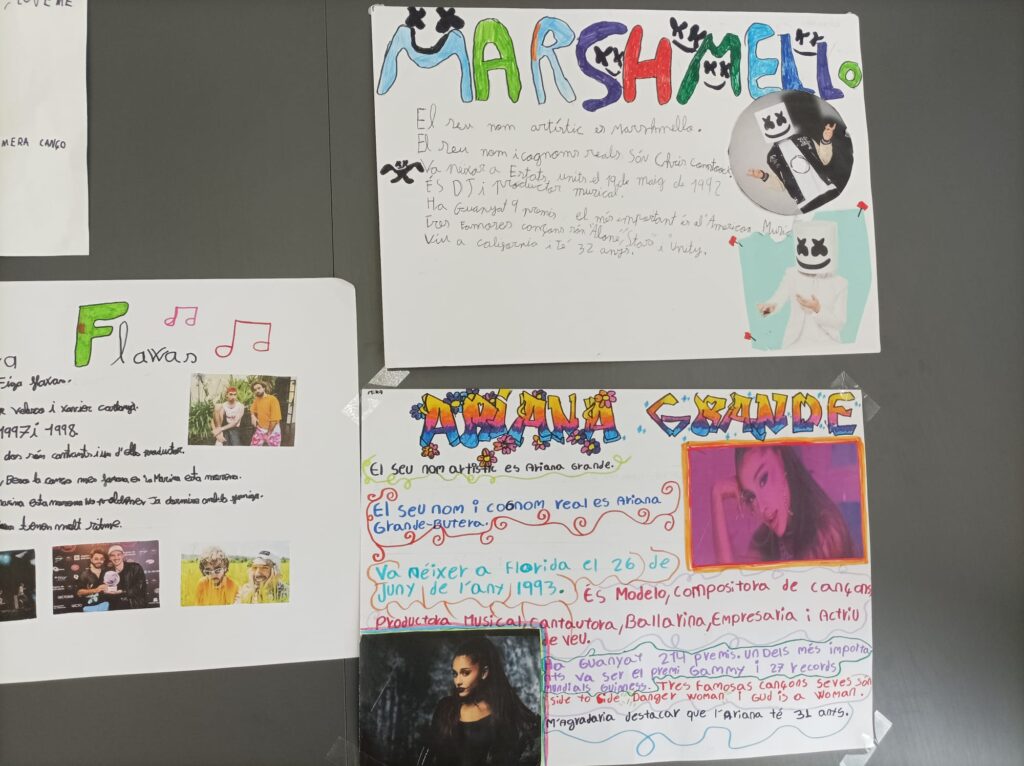 LOVE ME
MERA CANÇO
MARSHMELLO
El seu nom artístic es Marshmello.
El seu nom i cognoms reals són Chris
Va neixar a Estats units el 19 de maig de 1992
És DJ i productor musical.
Ha Guanyat 9 premis el més important és el American Music
tres famores cançons són "Alone", "Star" i Unity.
Viu a california i té 32 anys.
Flaxas
1997 i 1998
dos són cantants i un d'ells productor.
la canço mes famosa es la Marina esta morena.
tenen molt ritme.
ARIANA GRANDE
El seu nom artístic es Ariana Grande.
El seu nom i cognom real es Ariana
Grande-Butera.
Va néixer a Florida el 26 de
juny de l'any 1993.
És Modelo, compositora de cançons,
Productora Musical, cantautora, Ballarina, Empresaria i Actriu
de veu.
Ha Guanyat 274 premis. un dels més importa
nts va ser el premi Gammy i 27 records
mundials Guinness. Tres famosas cançons seves són
side to side, Danger woman i Gud is a woman.
M'agradaria destacar que l'Ariana té 31 anys.